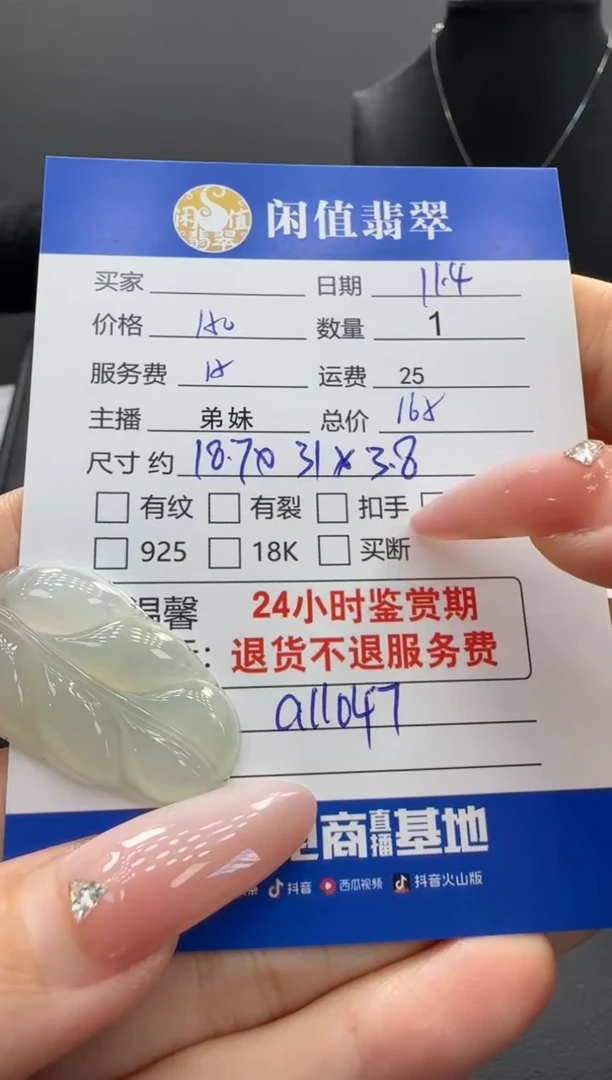 闲值翡翠
闲值翡翠
买家 日期 11.4
价格 180 数量 1
服务费 18 运费 25
主播 弟妹 总价 168
尺寸 约 18.7x 31x3.8
有纹 有裂 扣手
925 18K 买断
温馨 24小时鉴赏期
: 退货不退服务费
a11047
商直播基地
抖音 西瓜视频 抖音火山版